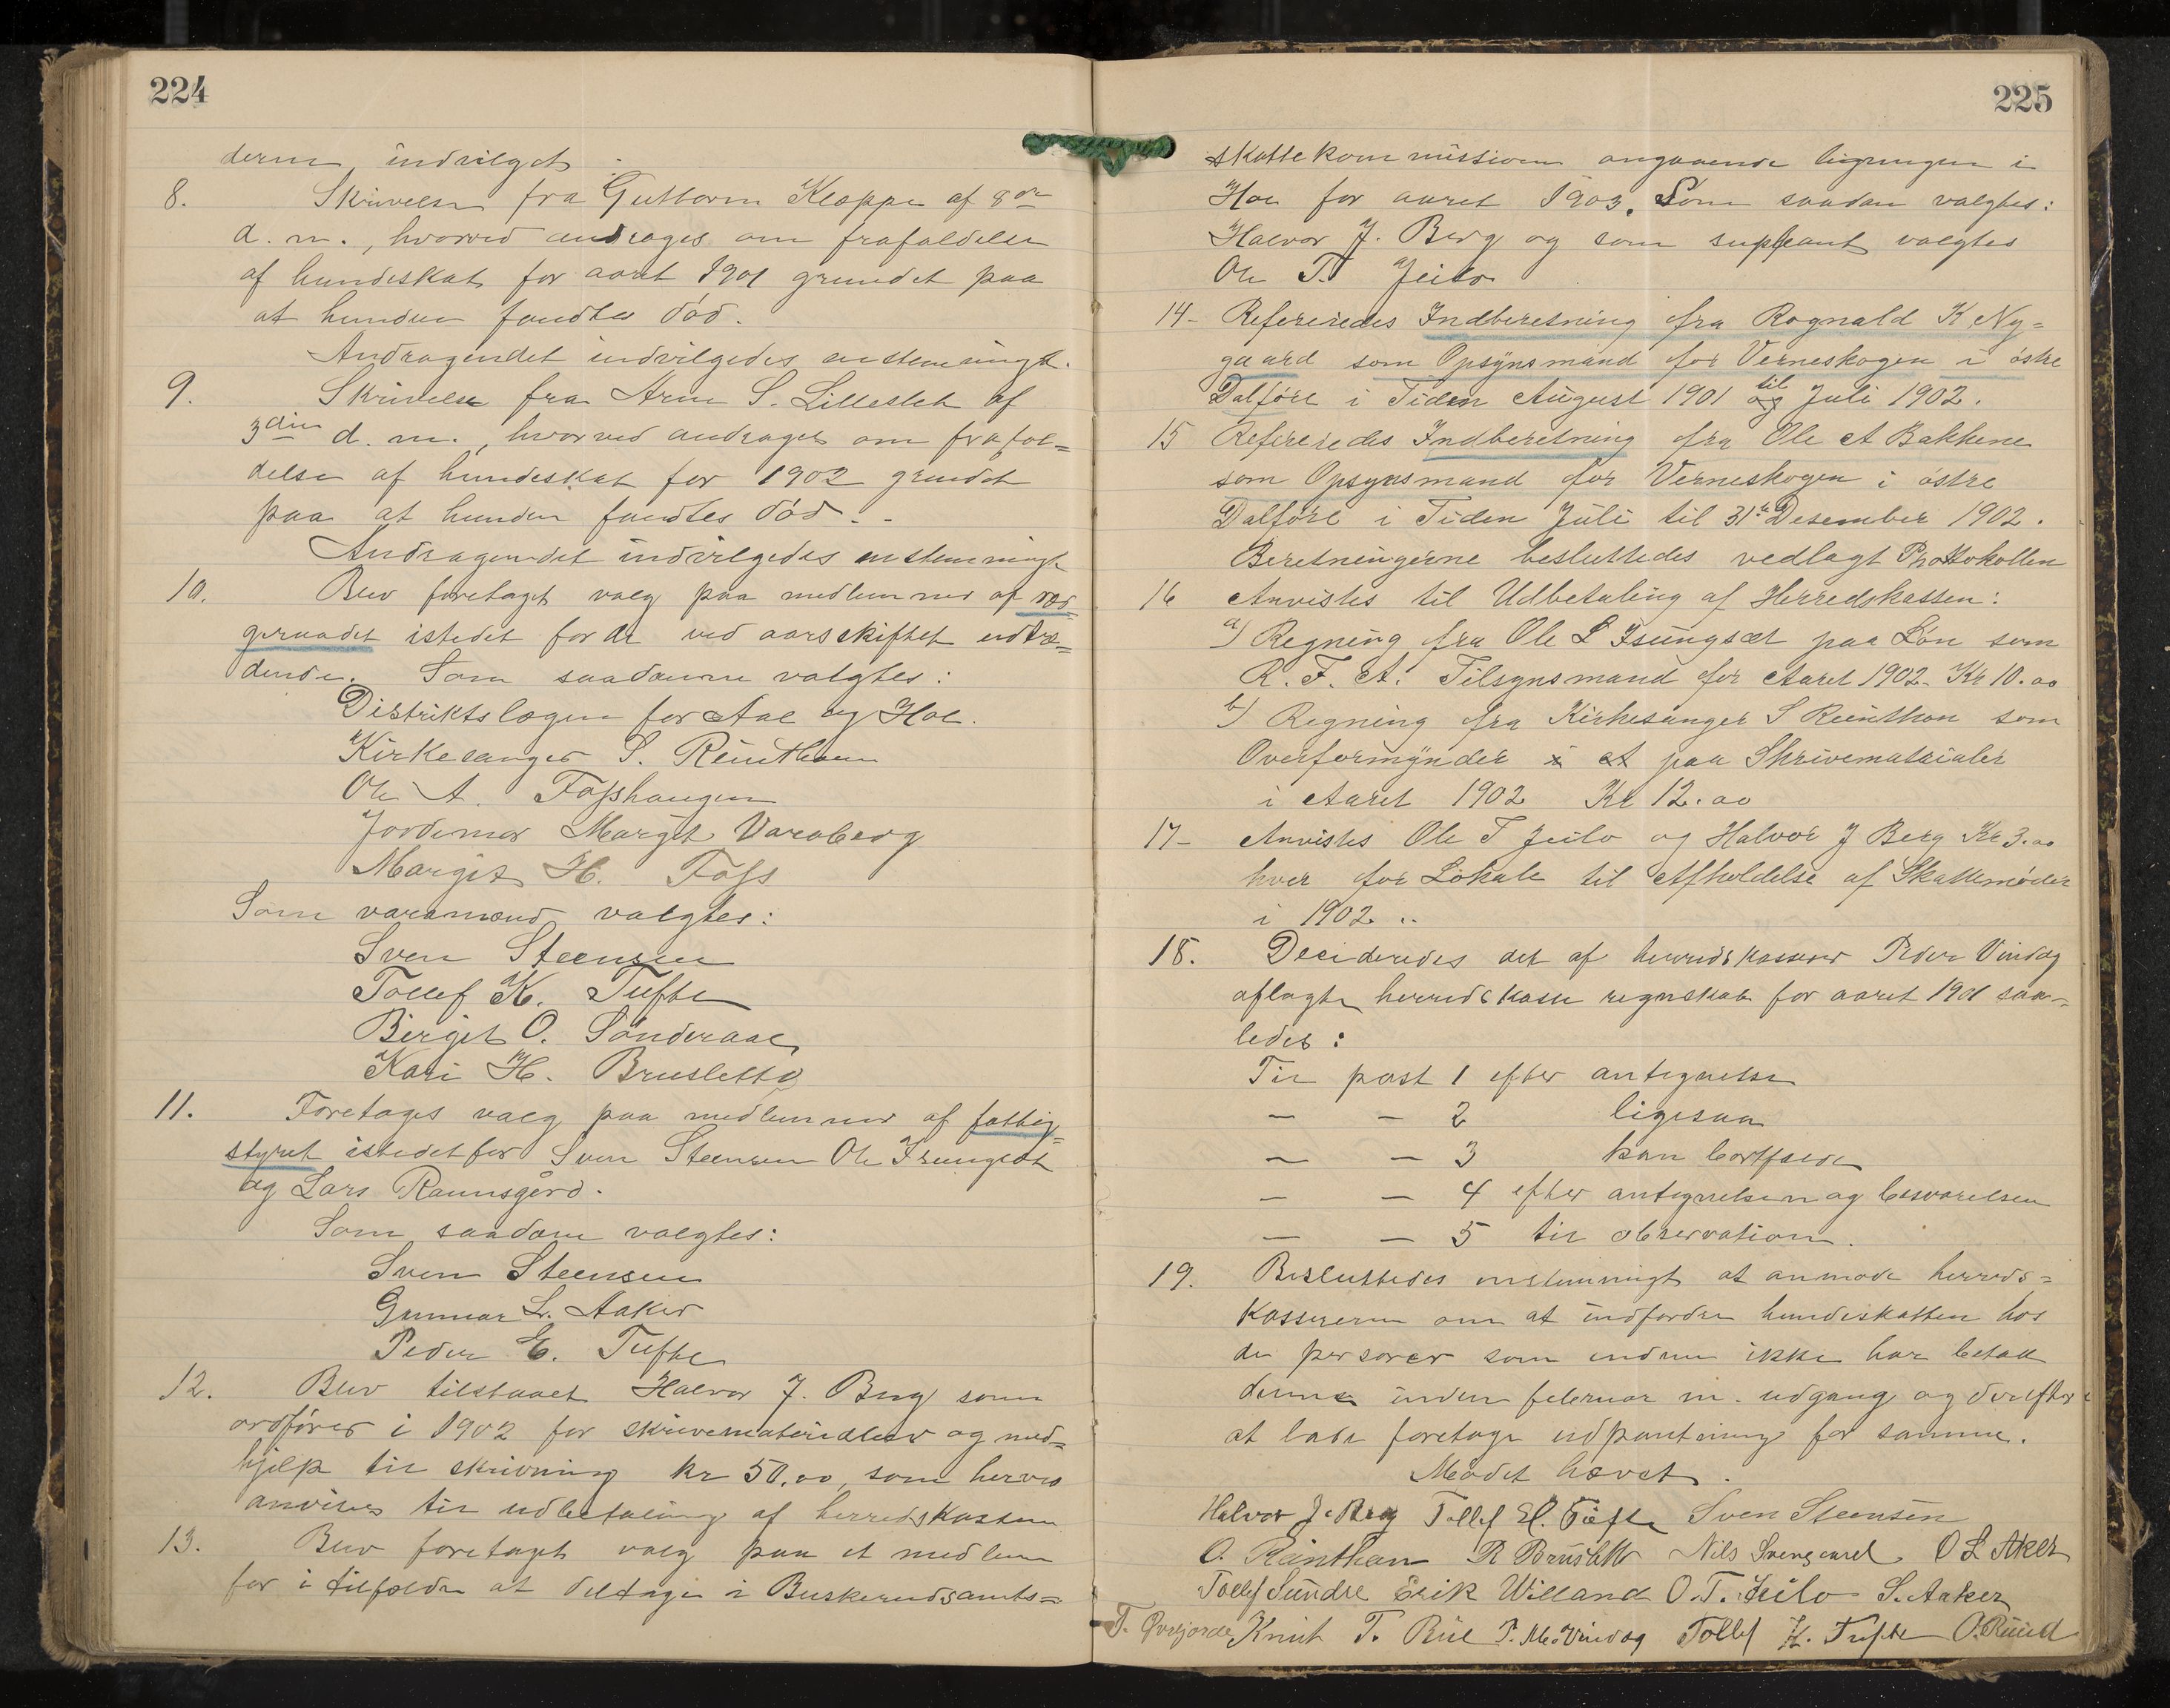 224
derne indvilget.
8. Skrivelse fra Guttorm Kleppe af 8de
d. m., hvorved androges om frafaldelse
af hundeskat for aaret 1901 grundet paa
at hunden fandtes død.
Andragendet indvilgedes enstemmigt.
9. Skrivelse fra Arne S. Lilleslet af
3die d. m., hvorved androges om frafal=
delse af hundeskat for 1902 grundet
paa at hunden fandtes død. -
Andragendet indvilgedes enstemmigt
10. Blev foretaget valg paa medlemmer af vær
geraadet istedet for de ved aarsskiftet udtræ=
dende. Som saadanne valgtes:
Distriktslægen for Aal og Hol.
Kirkesanger S. Reinthon
Ole A. Fosshaugen
Jordemor Margit Varaberg
Margit H. Foss
Som varamænd valgtes:
Sven Steensen
Tollef K. Tufte
Birgit O. Sønderaal
Kari H. Brusletto
11. Foretoges valg paa medlemmer af fattig=
styret istedetfor Sven Steensen Ole Isungset
og Lars Raunsgård.
Som saadan valgtes:
Sven Steensen
Gunnar L. Aaker
Peder E. Tufte
12. Blev tilstaaet Halvor J. Berg som
ordfører i 1902 for skrivematerialier og med=
hjelp til skrivning kr 50.00, som herved
anvises til udbetaling af herredskassen
13. Blev foretaget valg paa et medlem
for i tilfælde at deltage i Buskerudsamts=
225
skattekommission angaaende ligningen i
Hol for aaret 1903. Som saadan valgtes:
Halvor J. Berg og som supleant valgtes
Ole T. Jeilo
14- Refereredes Indberetning fra Rognald K Ny=
gaard som Opsynsmand for Verneskogen i østre
Dalføre i Tiden August 1901 og til Juli 1902.
15 Refereredes Indberetning fra Ole A Bakkene
som Opsynsmand for Verneskogen i østre
Dalføre i Tiden Juli til 31te Desember 1902.
Beretningerne besluttedes vedlagt Prottokollen
16 Anvistes til Udbetaling af Herredskassen:
a) Regning fra Ole L Isungset paa Løn som
R. F. A. Tilsynsmand for Aaret 1902. Kr 10.00
b) Regning fra Kirkesanger S Reinthon som
Overformynder paa Skrivematrialer
i Aaret 1902 Kr 12.00
17- Anvistes Ole T Jeilo og Halvor J Berg Kr 3.00
hver for Lokale til Afholdelse af Skattemøder
i 1902 ..
18. Decideredes det af herredskasserer Peder Vindag
aflagte herredskasse regnskab for aaret 1901 saa=
ledes:
Til post 1 efter antegnelse
— — 2 ligesaa
— — 3 kan bortfalde
— — 4 efter antegnelsen og besvarelsen
— — 5 til observation.
19. Besluttedes enstemmigt at anmode herreds=
kassereren om at indfordre hundeskatten hos
de personer som endnu ikke har betalt
denne inden februar m. udgang og derefter
at lade foretage udpantning for samme.
Mødet hævet.
Halvor J. Berg Tollef H. Tufte Sven Steensen
O. Reinthon R Brusletto Nils Svengaard O L Aker
Tollef Sundre Erik Willand O. T. Jeilo S. Aaker
T. Øvrejorde Knut T. Bül P. M. Vindag Tollef K. Tufte O. Ruud